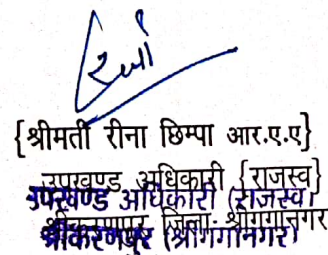 {श्रीमती रीना छिम्पा आर.ए.ए}
उपखण्ड अधिकारी {राजस्व}
उपखण्ड अधिकारी (राजस्व)
श्रीकरणपुर जिला- श्रीगंगानगर
श्रीकरणपुर (श्रीगंगानगर)